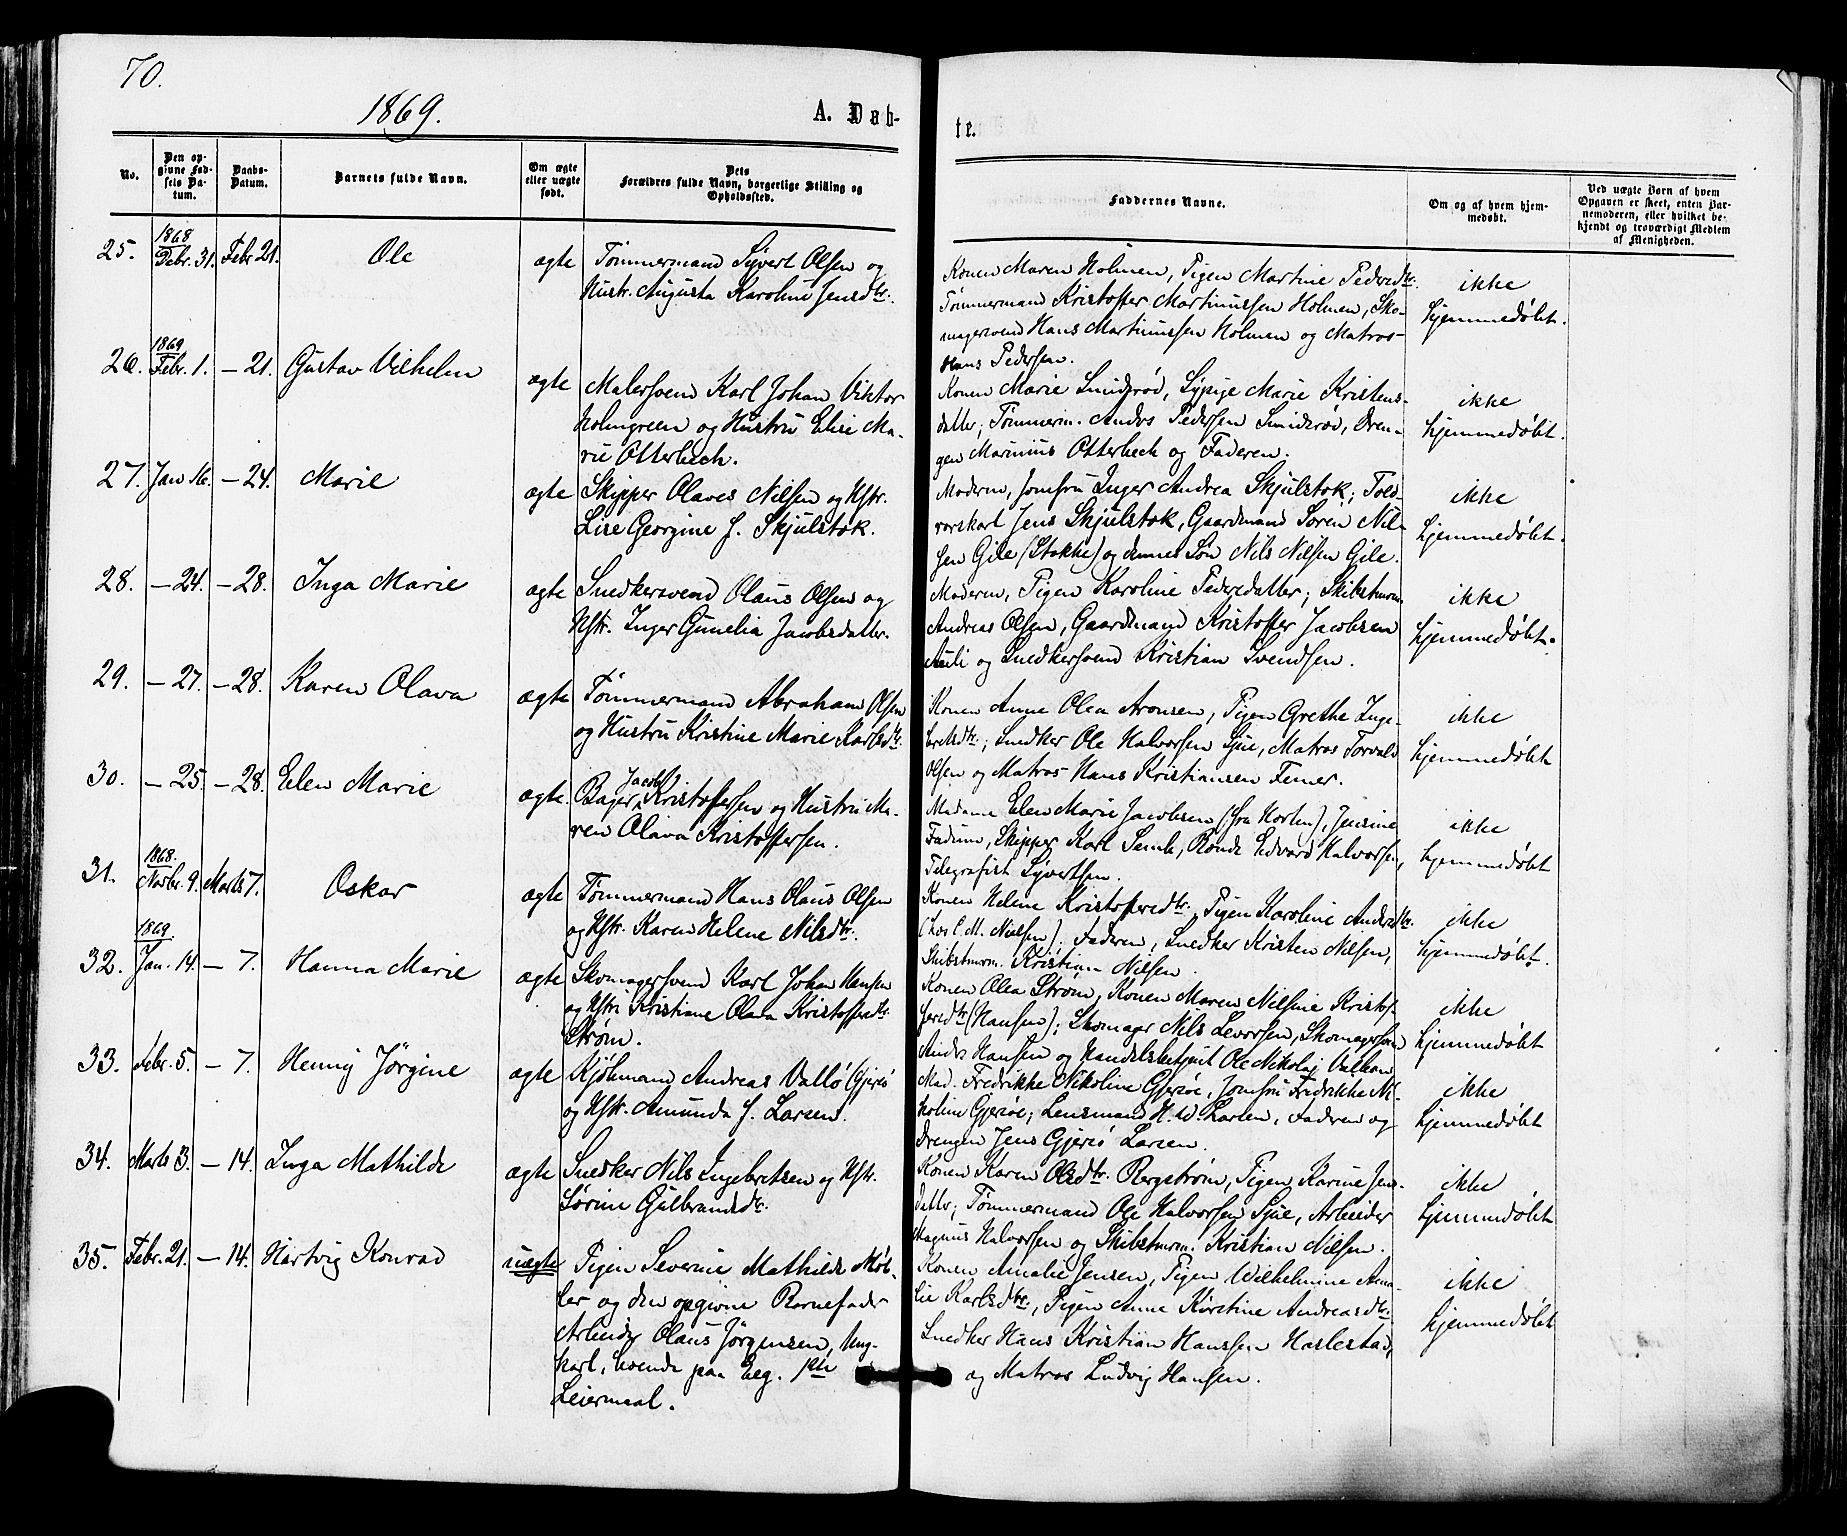 70.
1869.
A. Døb-
te.
No.
Den op-
givne Fød-
sels Da-
tum.
Daabs-
Datum.
Barnets fulde Navn.
Om ægte
eller uægte
født.
Dets
Forældres fulde Navn, borgerlige Stilling og
Opholdssted.
Faddernes Navne.
Om og af hvem hjem-
medøbt.
Ved uægte Børn af hvem
Opgaven er skeet, enten Bar-
nemoderen, eller hvilket be-
kjendt og troværdigt Medlem
af Menigheden.
25.
1868
Debr. 31.
Febr 21.
Ole
ægte
Tømmermand Syvert Olsen og
Hustr. Augusta Karoline Jensdtr.
Konen Maren Holmen, Pigen Martine Pedersdtr.
Tømmermand Kristoffer Martinussen Holmen, Sko-
magersvend Hans Martinussen Holmen og Matros
Hans Pedersen.
ikke
hjemmedøbt.
26.
1869
Febr. 1.
- 21.
Gustav Vilhelm
ægte
Malersvend Karl Johan Viktor
Holmgreen og Hustru Elise Ma-
rie Otterbech.
Konen Marie Smidsrød, Sypige Marie Kristens-
datter; Tømmerm. Anders Pedersen Smidsrød, Dren-
gen Marinius Otterbech og Faderen.
ikke
hjemmedøbt.
27.
Jan 16.
- 24.
Marie
ægte
Skipper Olaves Nilsen og Hstr.
Lise Georgine f. Skjulstok.
Moderen, Jomfru Inger Andrea Skjulstok; Told-
rorskarl Jens Skjulstok, Gaardmand Søren Nil-
sen Gile (Stokke) og dennes Søn Nils Nilsen Gile.
ikke
hjemmedøbt.
28.
- 24.
- 28.
Inga Marie
ægte
Snedkersvend Olaus Olsen og
Hstr. Inger Gunelia Jacobsdatter.
Moderen, Pigen Karoline Pedersdatter; Skibstmrm.
Andreas Olsen, Gaardmand Kristoffer Jacobsen
Auli og Snedkersvend Kristian Svendsen.
ikke
hjemmedøbt.
29.
- 27.
- 28.
Karen Olava
ægte
Tømmermand Abraham Olsen
og Hustru Kristine Marie Karlsdtr.
Konen Anne Olea Aronsen, Pigen Grethe Inge-
bretsdtr; Snedker Ole Halvorsen Sjue, Matros Torvald
Olsen og Matros Hans Kristiansen Femer.
ikke
hjemmedøbt
30.
- 25.
- 28.
Elen Marie
ægte.
Jacob
Bager Kristoffersen og Hustru Ma-
ren Olava Kristoffersen.
Madame Elen Marie Jacobsen (fra Horten), Jensine
Fadum, Skipper Karl Semb, Edvard Halvorsen,
Telegrafist Syvertsen.
ikke
hjemmedøbt
31.
1868.
Novbr. 9.
Marts 7.
Oskar
ægte
Tømmermand Hans Olaus Olsen
og Hstr. Karen Helene Nilsdtr.
Konen Helene Kristoffersdtr. Pigen Karoline Andersdtr.
(hos C. M. Nielsen); Faderen, Snedker Kristen Nilsen,
Skibstmrm. Kristian Nilsen.
ikke
hjemmedøbt.
32.
1869.
Jan. 14.
- 7.
Hanna Marie
ægte
Skomagersvend Karl Johan Hansen
og Hstr. Kristiane Olava Kristoffersdtr.
Strøm.
Konen Olea Strøm, Konen Maren Nilsine Kristof-
fersdtr (Hansen); Skomager Nils Levorsen, Skomagersvend
Anders Hansen og Handelsbetjent Ole Nikolaj
ikke
hjemmedøbt
33.
Febr. 5.
- 7.
Henny Jörgine
ægte
Kjöbmand Andreas Vallö Gjersö
og Hstr. Amunda f. Larsen.
Mad. Fredrikke Nikoline Gjersöe, Jomfru Fredrikke Ni-
koline Gjersöe; Lensmand H. W. Larsen, Faderen og
Drengen Jens Gjersö Larsen.
ikke
hjemmedøbt
34.
Marts 3.
- 14.
Inga Mathilde
ægte
Snedker Nils Ingebretsen og Hstr.
Sørine Gulbrandsdtr.
Konen Karen Olsdtr. Bergstrøm, Pigen Karine Jens-
datter; Tømmermand Ole Halvorsen Sjue, Arbeider
Magnus Halvorsen og Skibstmrm. Kristian Nilsen.
ikke
hjemmedøbt
35.
Febr. 21.
- 14.
Hartvig Konrad
uægte
Pigen Severine Mathilde Møl-
ler og den opgivne Barnefader
Arbeider Olaus Jörgensen, Ung-
karl, boende paa Eeg. 1ste
Leiermaal.
Konen Amalie Jensen, Pigen Wilhelmine Ama-
lie Karlsdtr, Pigen Anne Kirstine Andreasdtr.
Snedker Hans Kristian Hanssen Harlestad,
og Matros Ludvig Hansen.
ikke
hjemmedøbt